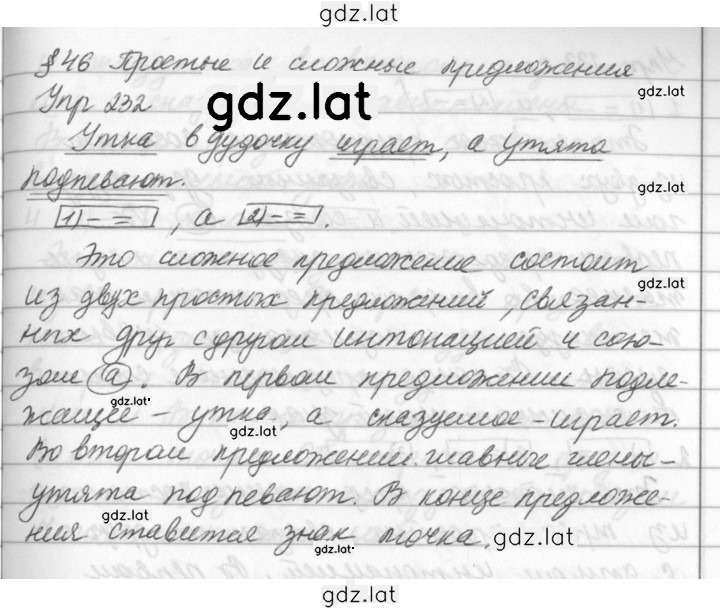 gdz.lat
§46 Простые и сложные предложения
gdz.lat
Упр 232
gdz.lat
Утка в дудочку играет, а утята
подпевают.
gdz.lat
1) – = , а 2) – = .
Это сложное предложение состоит
gdz.lat
из двух простых предложений, связан-
ных друг с другом интонацией и сою-
зом а. В первом предложении подле-
gdz.lat
жащее – утка, а сказуемое – играет.
gdz.lat
Во втором предложении главные члены –
утята подпевают. В конце предложе-
ния ставится знак точка.
gdz.lat
gdz.lat
gdz.lat